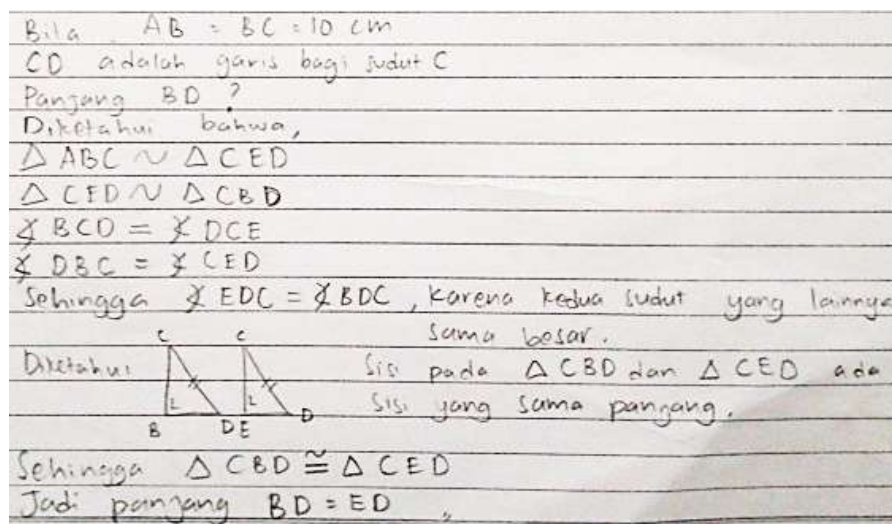 Bila AB = BC = 10 cm
CD adalah garis bagi sudut C
Panjang BD ?
Diketahui bahwa,
△ ABC ~ △ CED
△ CED ~ △ CBD
∠ BCD = ∠ DCE
∠ DBC = ∠ CED
Sehingga ∠ EDC = ∠ BDC, karena kedua sudut yang lainnya
sama besar.
Diketahui
C C
B D E D
Sisi pada △ CBD dan △ CED ada
sisi yang sama panjang.
Sehingga △ CBD ≅ △ CED
Jadi panjang BD = ED //